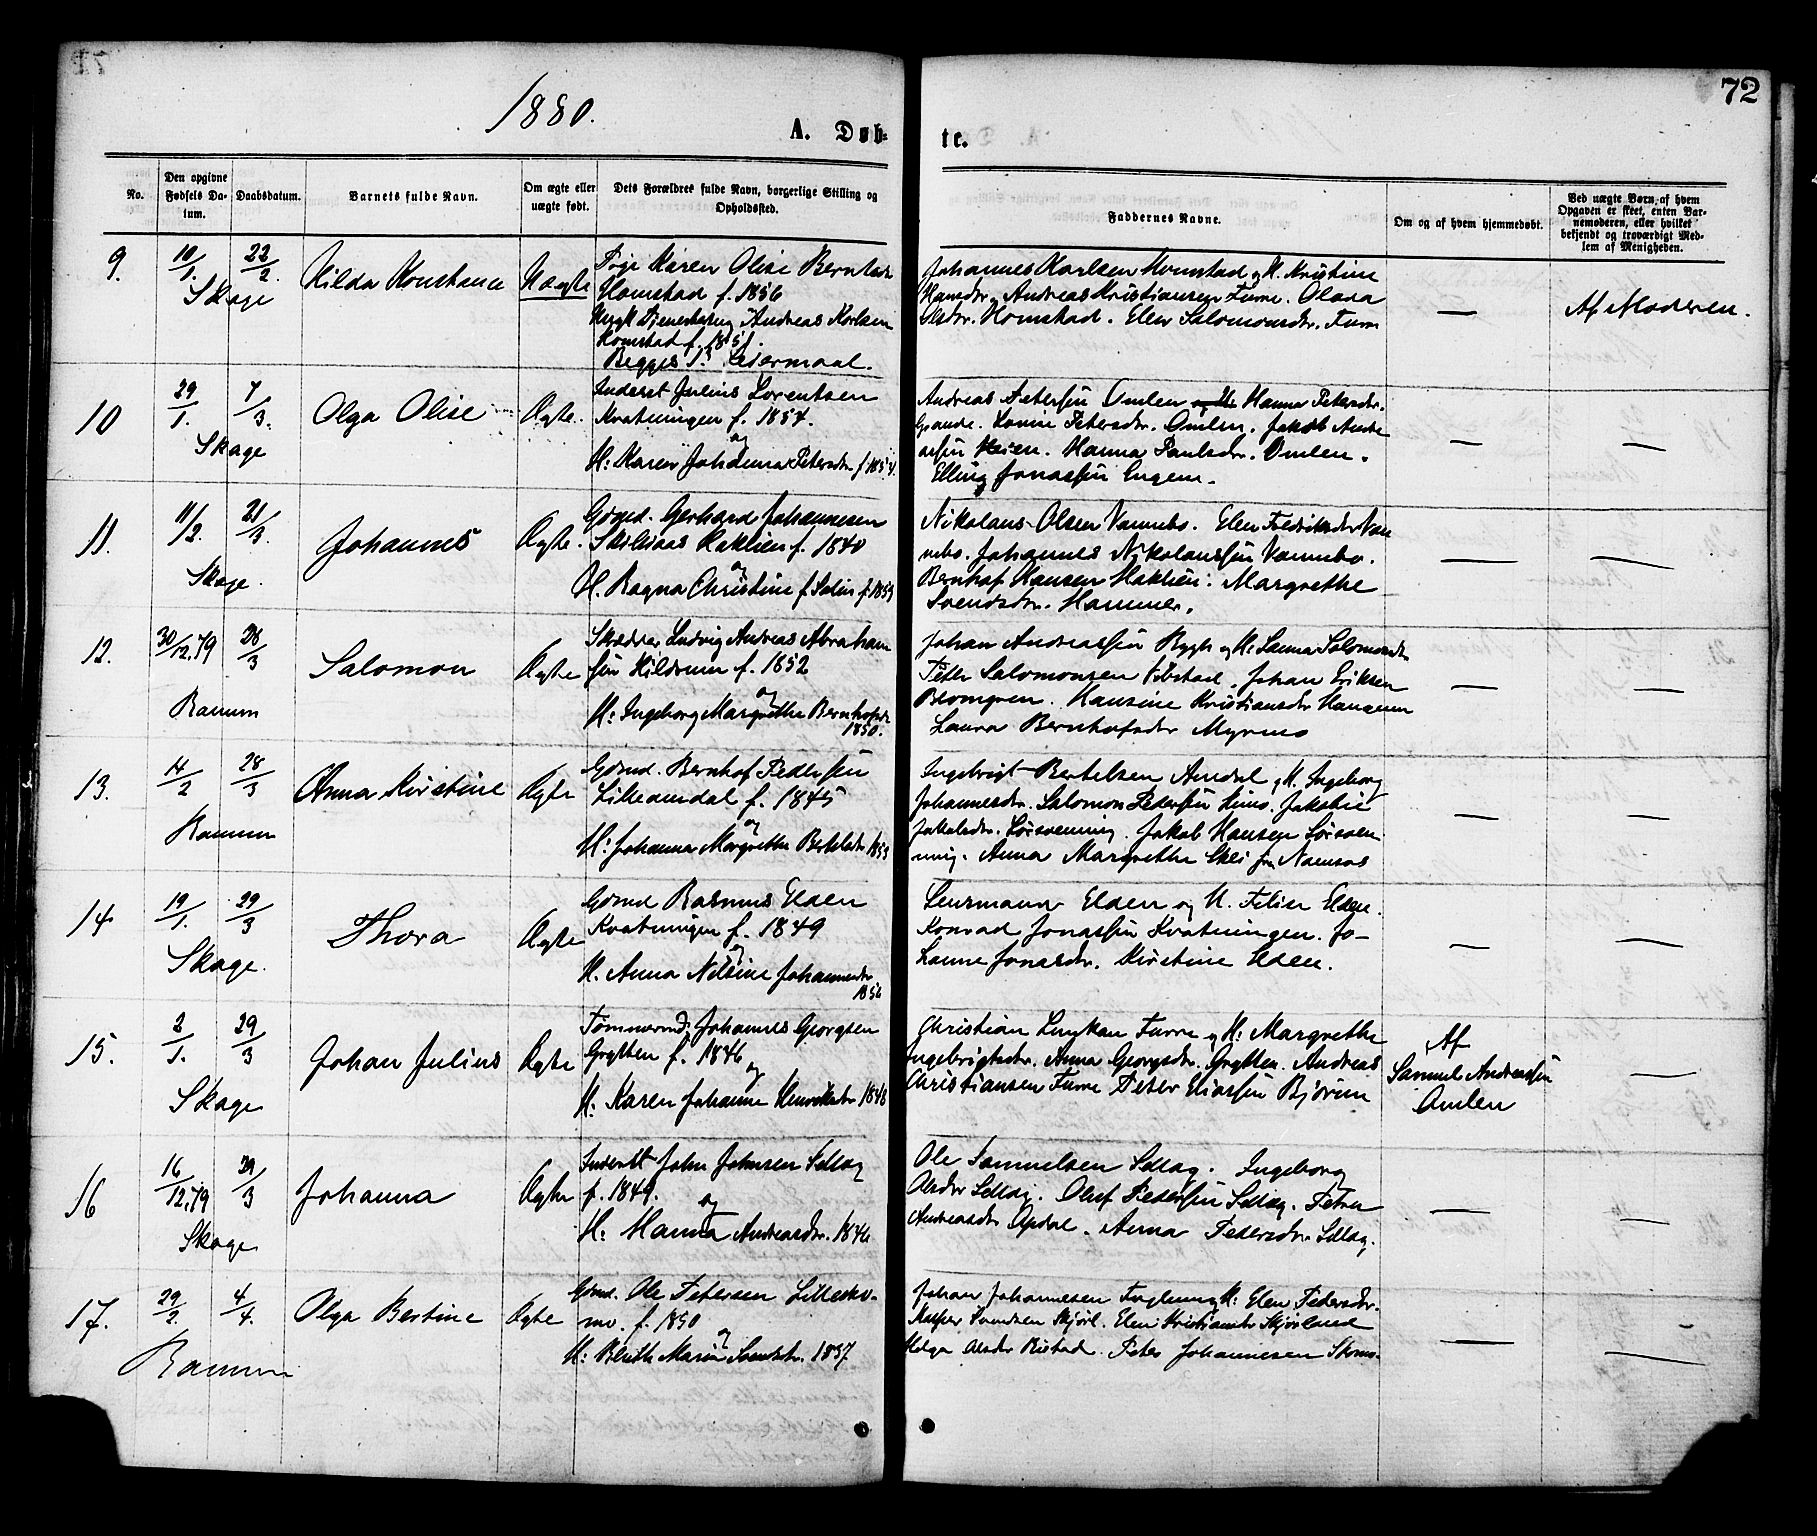 72
1880.
A. Døb-
te.
No.
Den opgivne Fødsels Datum.
Daabsdatum.
Barnets fulde Navn.
Om ægte eller uægte født.
Dets Forældres fulde Navn, borgerlige Stilling og Opholdsted.
Faddernes Navne.
Om og af hvem hjemmedøbt.
Ved uægte Børn, af hvem Opgaven er skeet, enten Barnemoderen, eller hvilket bekjendt og troværdigt Medlem af Menigheden.
9. 10/1. 22/2. Hilda Konstance Uægte
Skage
Pige Karen Olise Berntsdr
Homstad f. 1856
Ungk Andreas Karlsen
Homstad f. 1851.
Begges 1ste Leiermaal.
Johannes Karlsen Homstad og H. Kristine
Hansdr. Andreas Kristiansen Furre. Olava
Olsdr. Homstad. Elen Salomonsdr. Furre
— Af Moderen.
10 29/1. 7/3. Olga Olise Ægte.
Skage
Inderst Julius Lorentsen
Kvatningen f. 1854.
og
H: Karen Johanna Petersdr f. 1854.
Andreas Petersen Omlen Hanna Petersdr.
Grande. Lovise Petersdr. Omlen. Jakob Andre
assen Heien. Hanna Paulsdr. Omlen.
Elling Jonassen Engem.
— —
11. 11/2. 21/3. Johannes Ægte.
Skage.
Gdmd. Gerhard Johannesen
Haklien f. 1840
og
H. Ragna Christine f. 1859
Nikolaus Olsen Vannebo. Elen Fredriksdr Van
nebo. Johannes Nikolaussen Vannebo.
Bernhof Hansen Haklien. Margrethe
Svendsdr. Hammer.
— —
12. 30/12.79 28/3 Salomon Ægte
Ranum
Skrædder Ludvig Andreas Abraham
sen Hildrum f. 1852
og
H: Ingeborg Margrethe Bernhofsdr
1850.
Johan Andreassen Rygh og H: Sanna Salomonsdr
Peter Salomonsen . Johan Eriksen
Blomgren. Hansine Kristiansdr Hananem
Laura Bernhofsdr Myrmo
— —
13. 14/2 28/3 Anna Kristine Ægte
Ranum
Gdmd. Bernhof Pedersen
Lilleamdal f. 1845
og
H: Johanna Margrethe Bertelsdr 1853
Ingebrigt Bertelsen Amdal og H. Ingeborg
Johannesdr. Salomon Pedersen Himo. Jakobie
Jakobsdr. Sørsvenning. Jakob Hansen Sørsven
ning. Anna Margrethe Skei fra Namsos
— —
14 19/1. 29/3 Thora Ægte
Skage.
Gdmd Rasmus Elden
Kvatningen f. 1849
og
H. Anna Nilsine Johannesdr
1856
Lensmann Elden og H. Elden.
Konrad Jonassen Kvatningen. Jo-
hanne Jonasdr. Kirstine Elden.
— —
15. 2/1. 29/3 Johan Julius Ægte
Skage
Tømmermd. Johannes Georgsen
Grytten f. 1846
og
H: Karen Johanne Henriksdr 1848
Christian Furre og H: Margrethe
Ingebrigtsdr. Anna Georgsdr. Grytten. Andreas
Christiansen Furre Peter Eliassen Bjørum
Af
Samuel Andreassen
Omlen
—
16 16/12.79 29/3 Johanna Ægte
Skage
Inderst John Johnsen Sellæg
f. 1849.
og
H: Hanna Andreasdr. 1846
Ole Samuelsen Sellæg. Ingeborg
Olsdr Sellæg. Oluf Pedersen Sellæg. Petra
Andreasdr Opdal. Anna Pedersdr Sellæg.
— —
17. 29/2. 4/4. Olga Bertine Ægte
Ranum
Gdmd. Ole Petersen Lillesko-
mo. f. 1850
og
H: Berith Marie Svendsdr. 1857
Johan Johannesen Fuglum og H: Elen Pedersdr.
Svendsen Skjørl. Elen Kristiansdr Skjørland
Helga Olsdr Ristad. Peter Johannesen Skomo.
— —